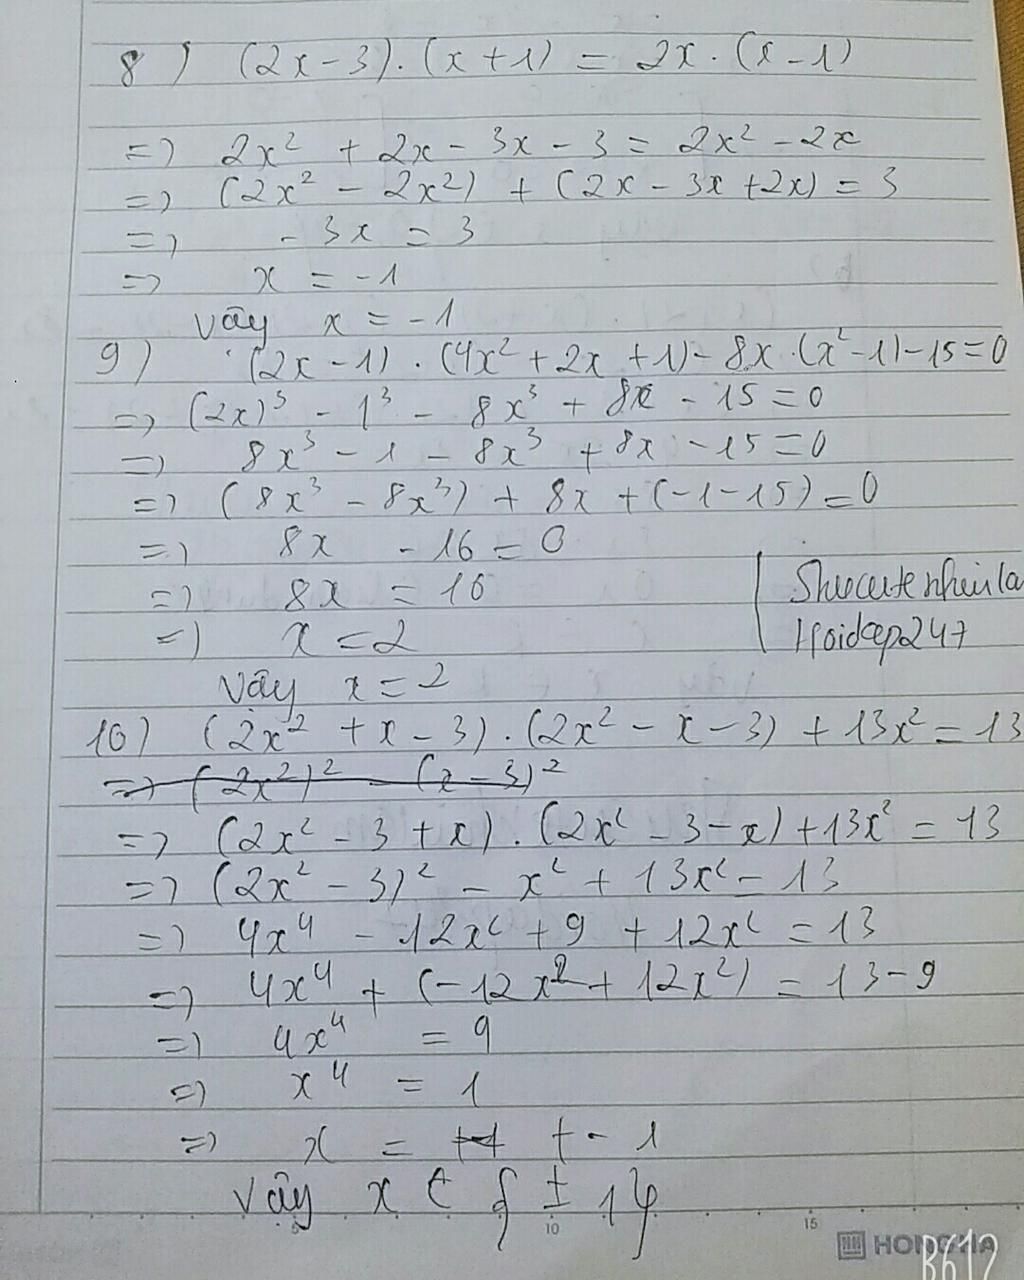 8) (2x-3).(x+1) = 2x.(x-1)
=> 2x² + 2x - 3x - 3 = 2x² - 2x
=> (2x² - 2x²) + (2x - 3x + 2x) = 3
=> - 3x = 3
=> x = -1
vây x = -1
9) (2x-1).(4x²+2x+1)-8x.(x²-1)-15=0
=> (2x)³ - 1³ - 8x³ + 8x - 15 = 0
=> 8x³ - 1 - 8x³ + 8x - 15 = 0
=> (8x³ - 8x³) + 8x + (-1-15) = 0
=> 8x - 16 = 0
=> 8x = 16
=> x = 2
Hoidap247
Vậy x = 2
10) (2x² + x - 3).(2x² - x - 3) + 13x² = 13
=> (2x²)² - (x-3)²
=> (2x² - 3 + x).(2x² - 3 - x) + 13x² = 13
=> (2x² - 3)² - x² + 13x² = 13
=> 4x⁴ - 12x² + 9 + 12x² = 13
=> 4x⁴ + (-12x² + 12x²) = 13-9
=> 4x⁴ = 9
=> x⁴ = 1
=> x = +- 1
Vây x ∈ {±1}
5 10 15
HONG HA
B612